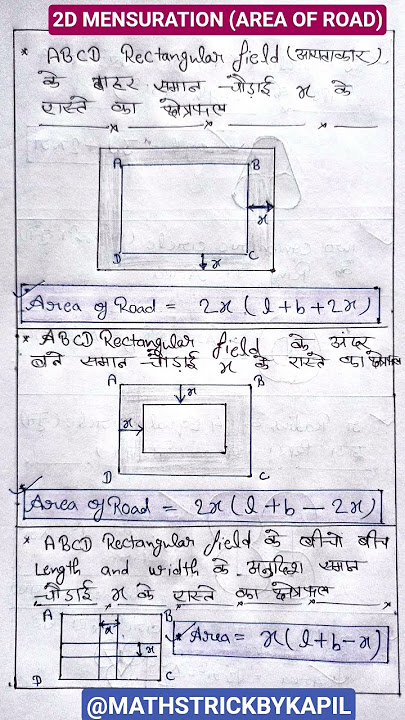 2D MENSURATION (AREA OF ROAD)
* ABCD Rectangular field (आयताकार)
के बाहर समान चौड़ाई x के
रास्ते का क्षेत्रफल
A B
x
D C
x
Area of Road = 2x(l+b+2x)
* ABCD Rectangular field के अंदर
बने समान चौड़ाई x के रास्ते का क्षेत्रफल
A B
x
x
D C
Area of Road = 2x(l+b-2x)
* ABCD Rectangular field के बीचो बीच
Length and width के अनुदिश समान
चौड़ाई x के रास्ते का क्षेत्रफल
A B
x
* Area = x(l+b-x)
x
D C
@MATHSTRICKBYKAPIL